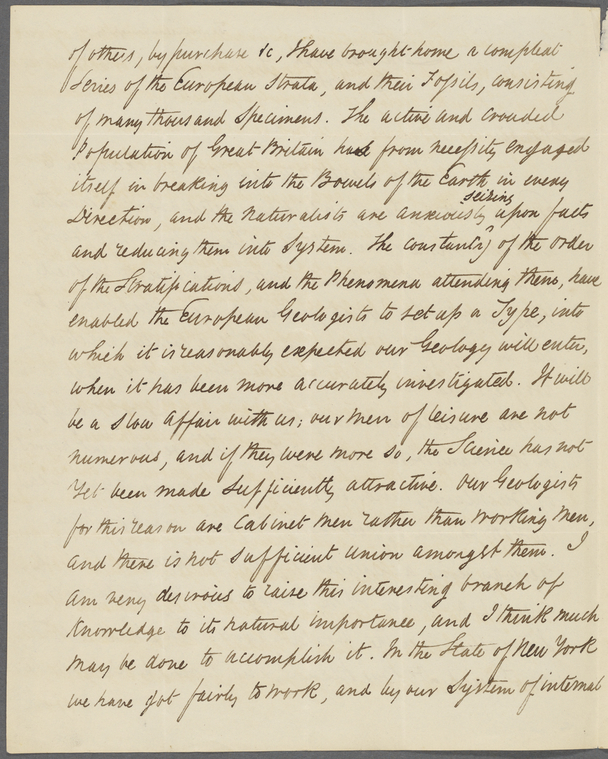 of others, by purchase &c, I have brought home a compleat
Series of the European Strata, and their Fossils, consisting
of many thousand Specimens. The active and crouded
Population of Great Britain has from necessity engaged
itself in breaking into the Bowels of the Earth in every
seizing
Direction, and the Naturalists are anxiously upon facts
and reducing them into System. The constancy of the order
of the Stratifications, and the Phenomena attending them, have
enabled the European Geologists to set up a Type, into
which it is reasonably expected our Geology will enter,
when it has been more accurately investigated. It will
be a slow affair with us; our men of leisure are not
numerous, and if they were more so, the Science has not
yet been made sufficiently attractive. Our Geologists
for this reason are Cabinet men rather than working men,
and there is not sufficient union amongst them. I
am very desirous to raise this interesting branch of
Knowledge to its natural importance, and I think much
may be done to accomplish it. In the State of New York
we have got fairly to work, and by our System of internal